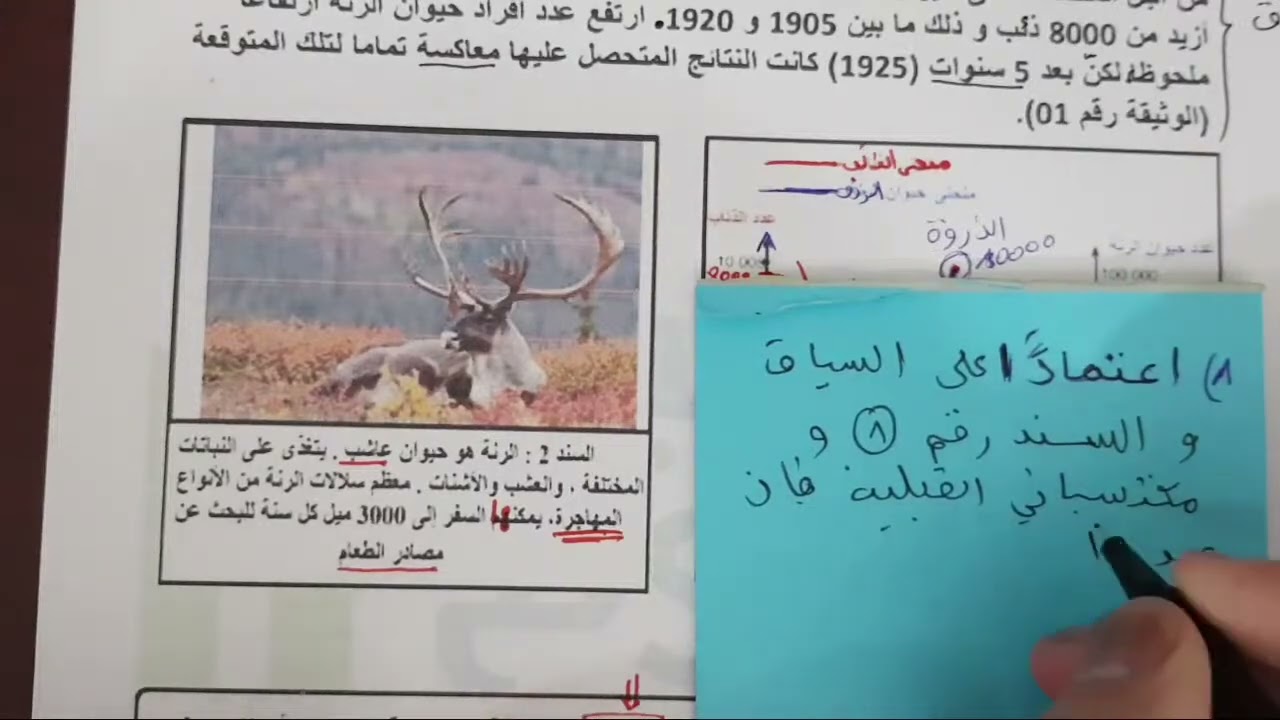 أزيد من 8000 ذئب و ذلك ما بين 1905 و 1920. ارتفع عدد أفراد حيوان الرنة ارتفاعا
ملحوظا لكن بعد 5 سنوات (1925) كانت النتائج المتحصل عليها معاكسة تماما لتلك المتوقعة
(الوثيقة رقم 01).
منحنى الذئاب
منحنى حيوان الرنة
عدد الذئاب
الذروة
عدد حيوان الرنة
10.00
100000
9000
100 000
السند 2 : الرنة هو حيوان عاشب . يتغذى على النباتات
المختلفة ، والعشب والأشنات . معظم سلالات الرنة من الأنواع
المهاجرة، يمكنها السفر إلى 3000 ميل كل سنة للبحث عن
مصادر الطعام
1) اعتمادًا على السياق
و السند رقم 1 و
مكتسباتي القبلية فان